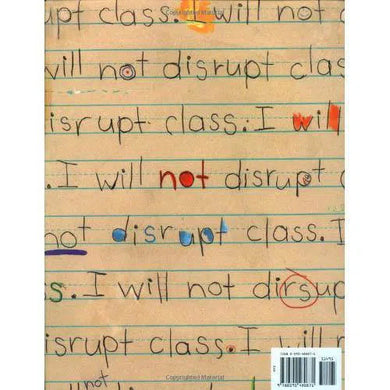 isrupt class. I will not d
will not disrupt clas
isrupt class. I will
. I will not disrupt c
not disrupt class. I
s. I will not dirsup
isrupt class. I will n
not